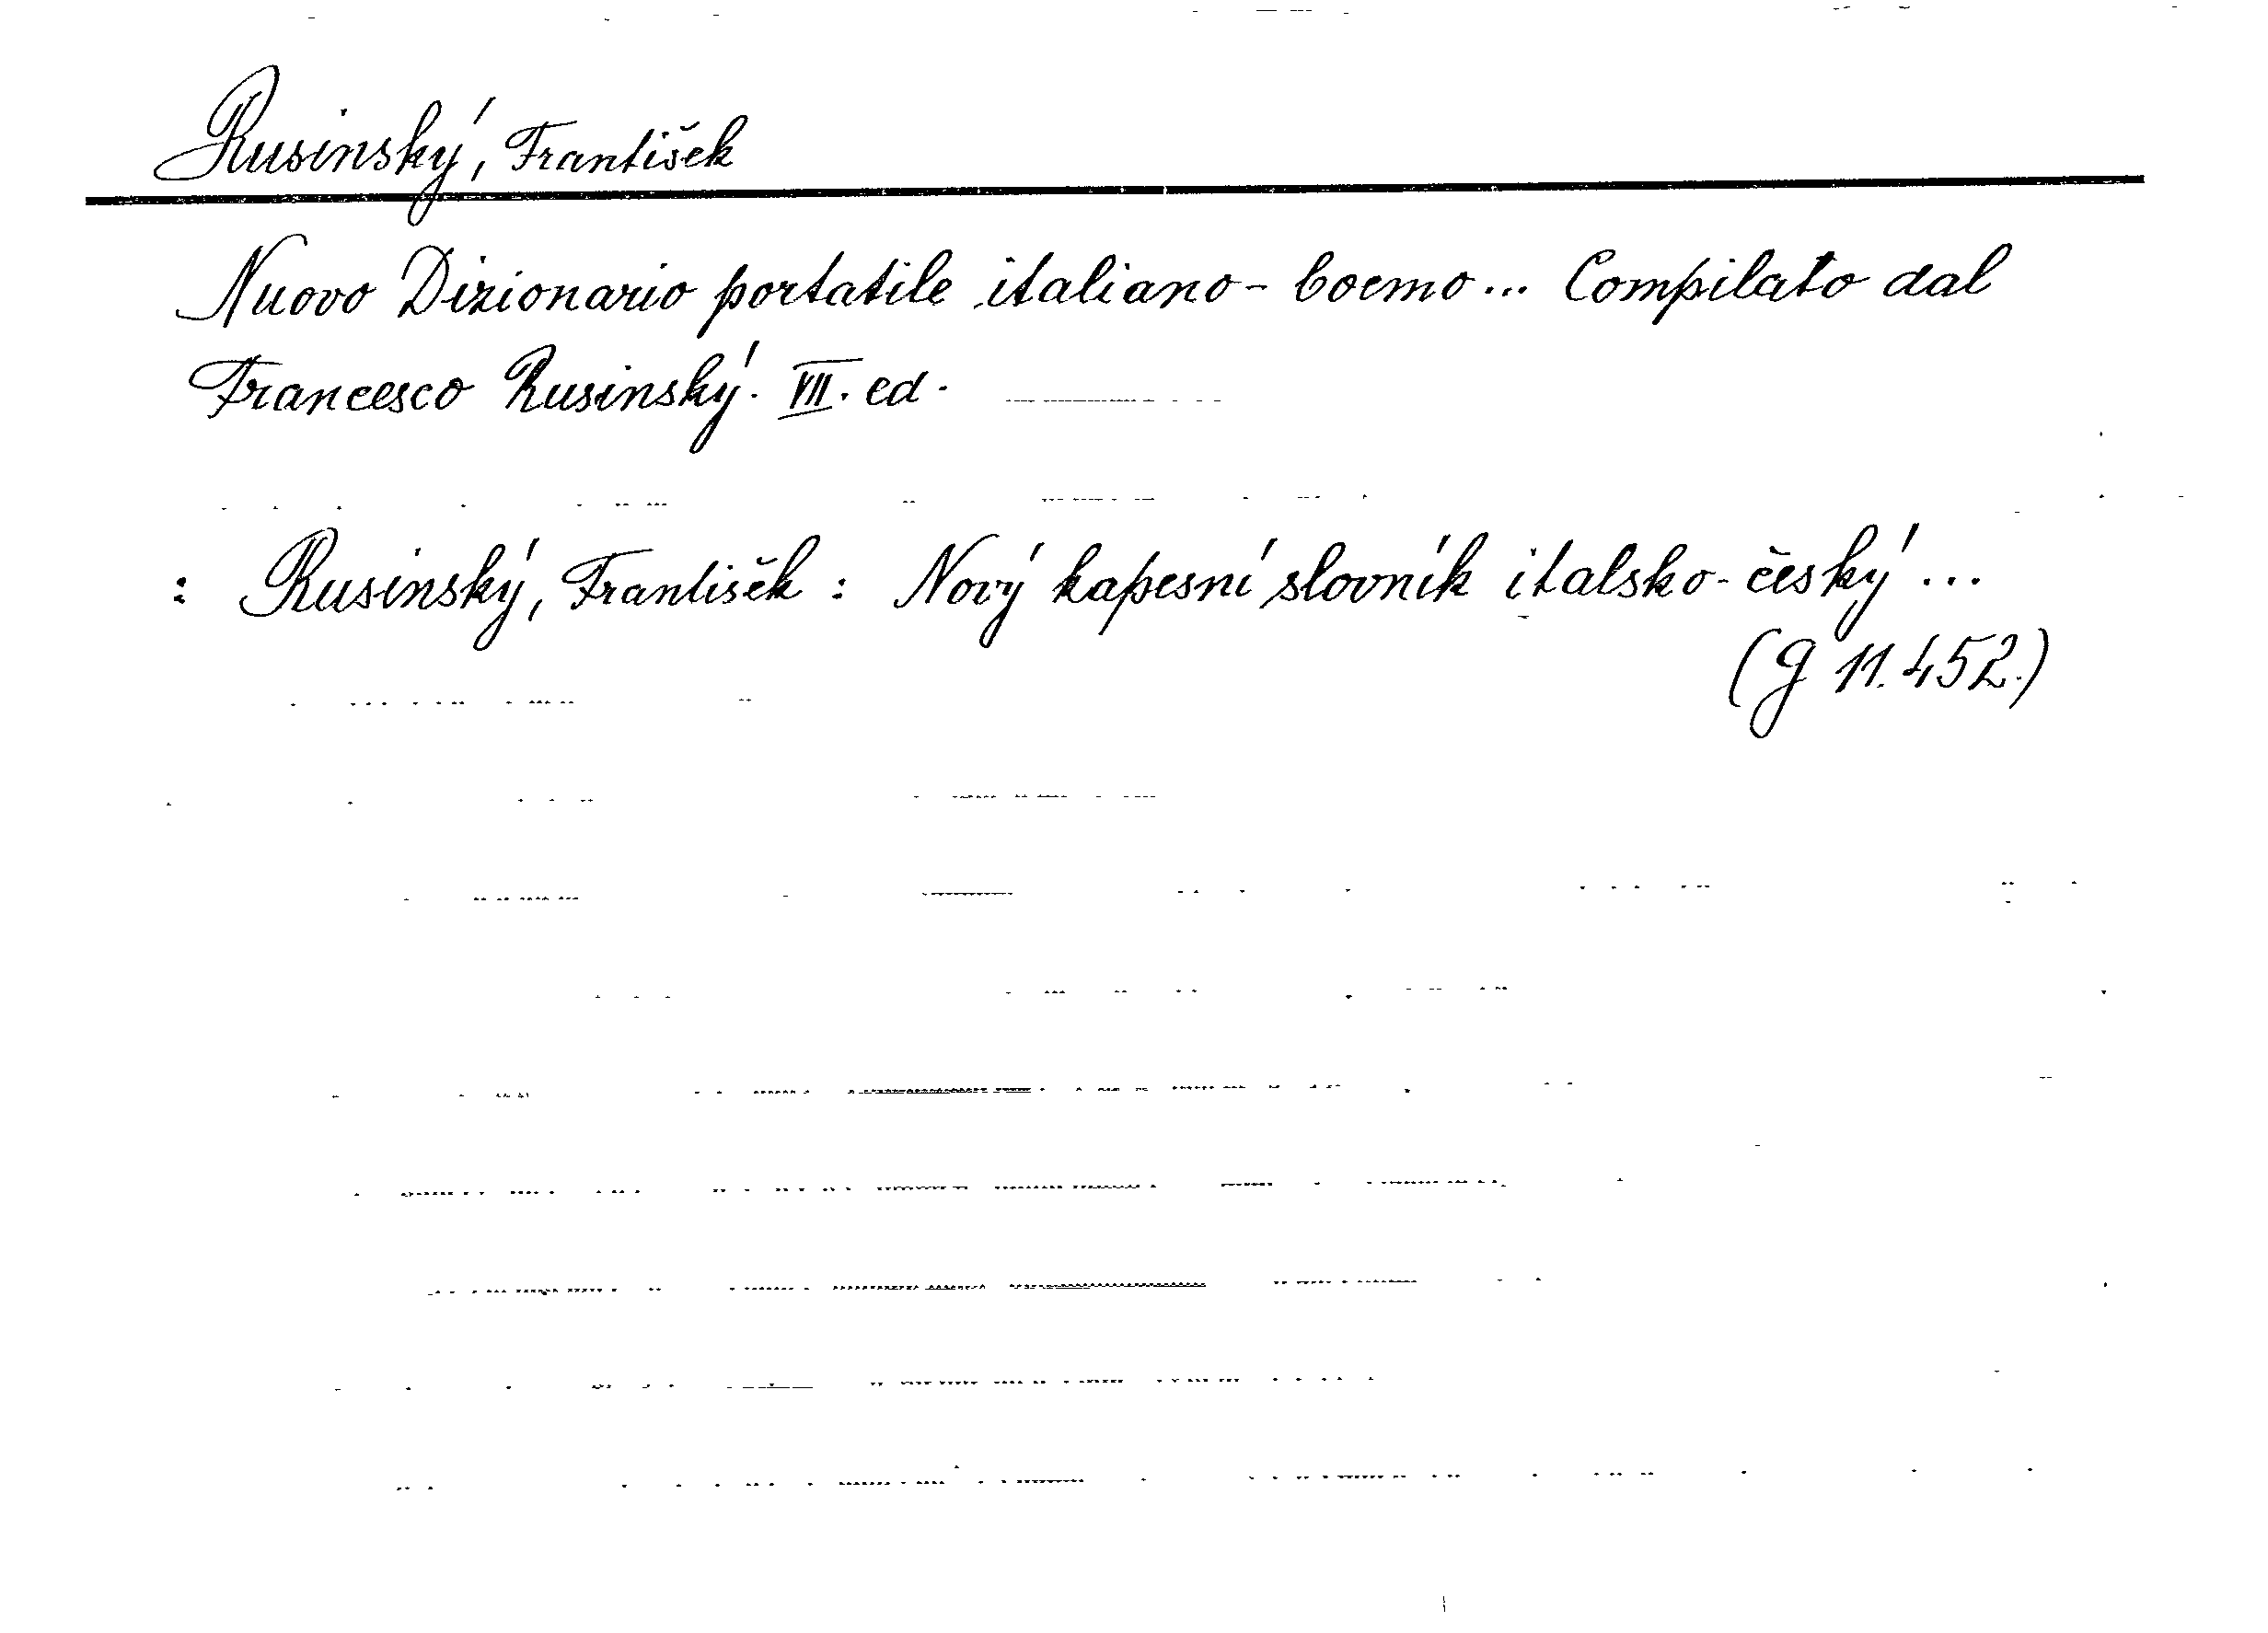 Rusinský, František
Nuovo Dizionario portatile italiano-boemo... Compilato dal
Francesco Rusinský. VII. ed.
: Rusinský, František : Nový kapesní slovník italsko-český...
(G 11.452.)